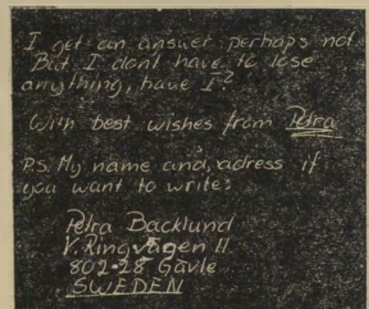 I get an answer perhaps not.
But I dont have to lose
anything, have I?
With best wishes from Petra
P.S. My name and, adress if
you want to write:
Petra Backlund
V. Ringvägen 11
802-28 Gävle
SWEDEN